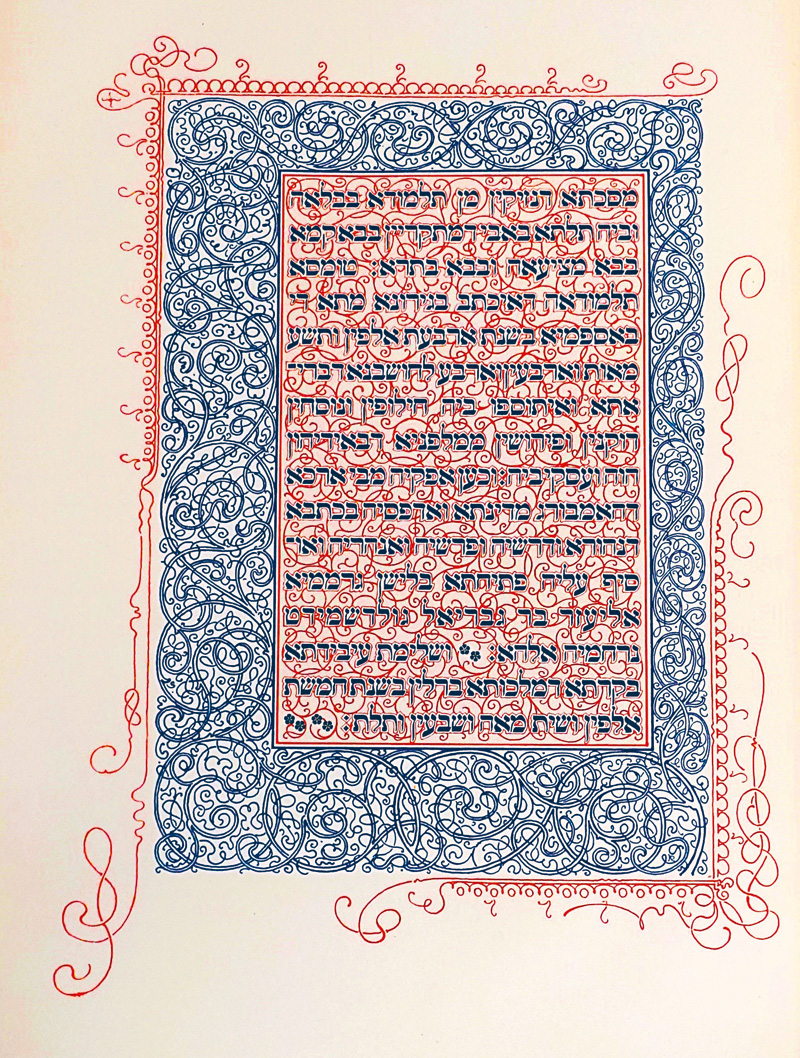 מסכתא דנזיקין מן תלמודא בבלאה
וביה תלתא באבי דמתקריין בבא קמא
בבא מציעאה ובבא בתרא: טומסא
תלמודאה דאיכתב בגירונא מתא די
באספמיא בשנת ארבעת אלפין ותשע
מאות וארבעין וארבע לחושבנא דברי
אתא ואיתוספו ביה חילופין ונוסחין
תיקנין ופירושין ממלפניא דבאידיהון
הוה ועסקי ביה: וכען אפקיה מבי ארכא
דהאמבורג מדינתא ואדפסיה בכתבא
דנהורא וחדשיה ופרשיה ואנהריה ואו
סיף עליה פתיחתא בלישן גרממיא
אליעזר בר גבריאל גולדשמידט
נרחמיה אלהא: ושלימת עיבידתא
בקרתא דמלכותא ברלין בשנת חמשת
אלפין ושית מאה ושבעין ותלת: